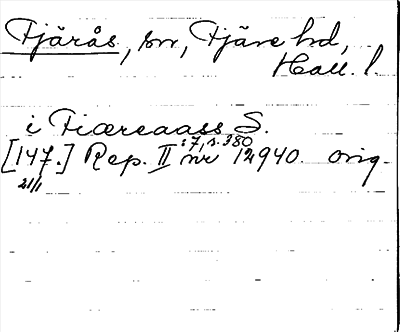 Fjärås, sn, Fjäre hd,
Hall. l.
i Fiæreaass S.
: 7, s. 380
[147.] Rep. II nr 12940. orig.
21/1